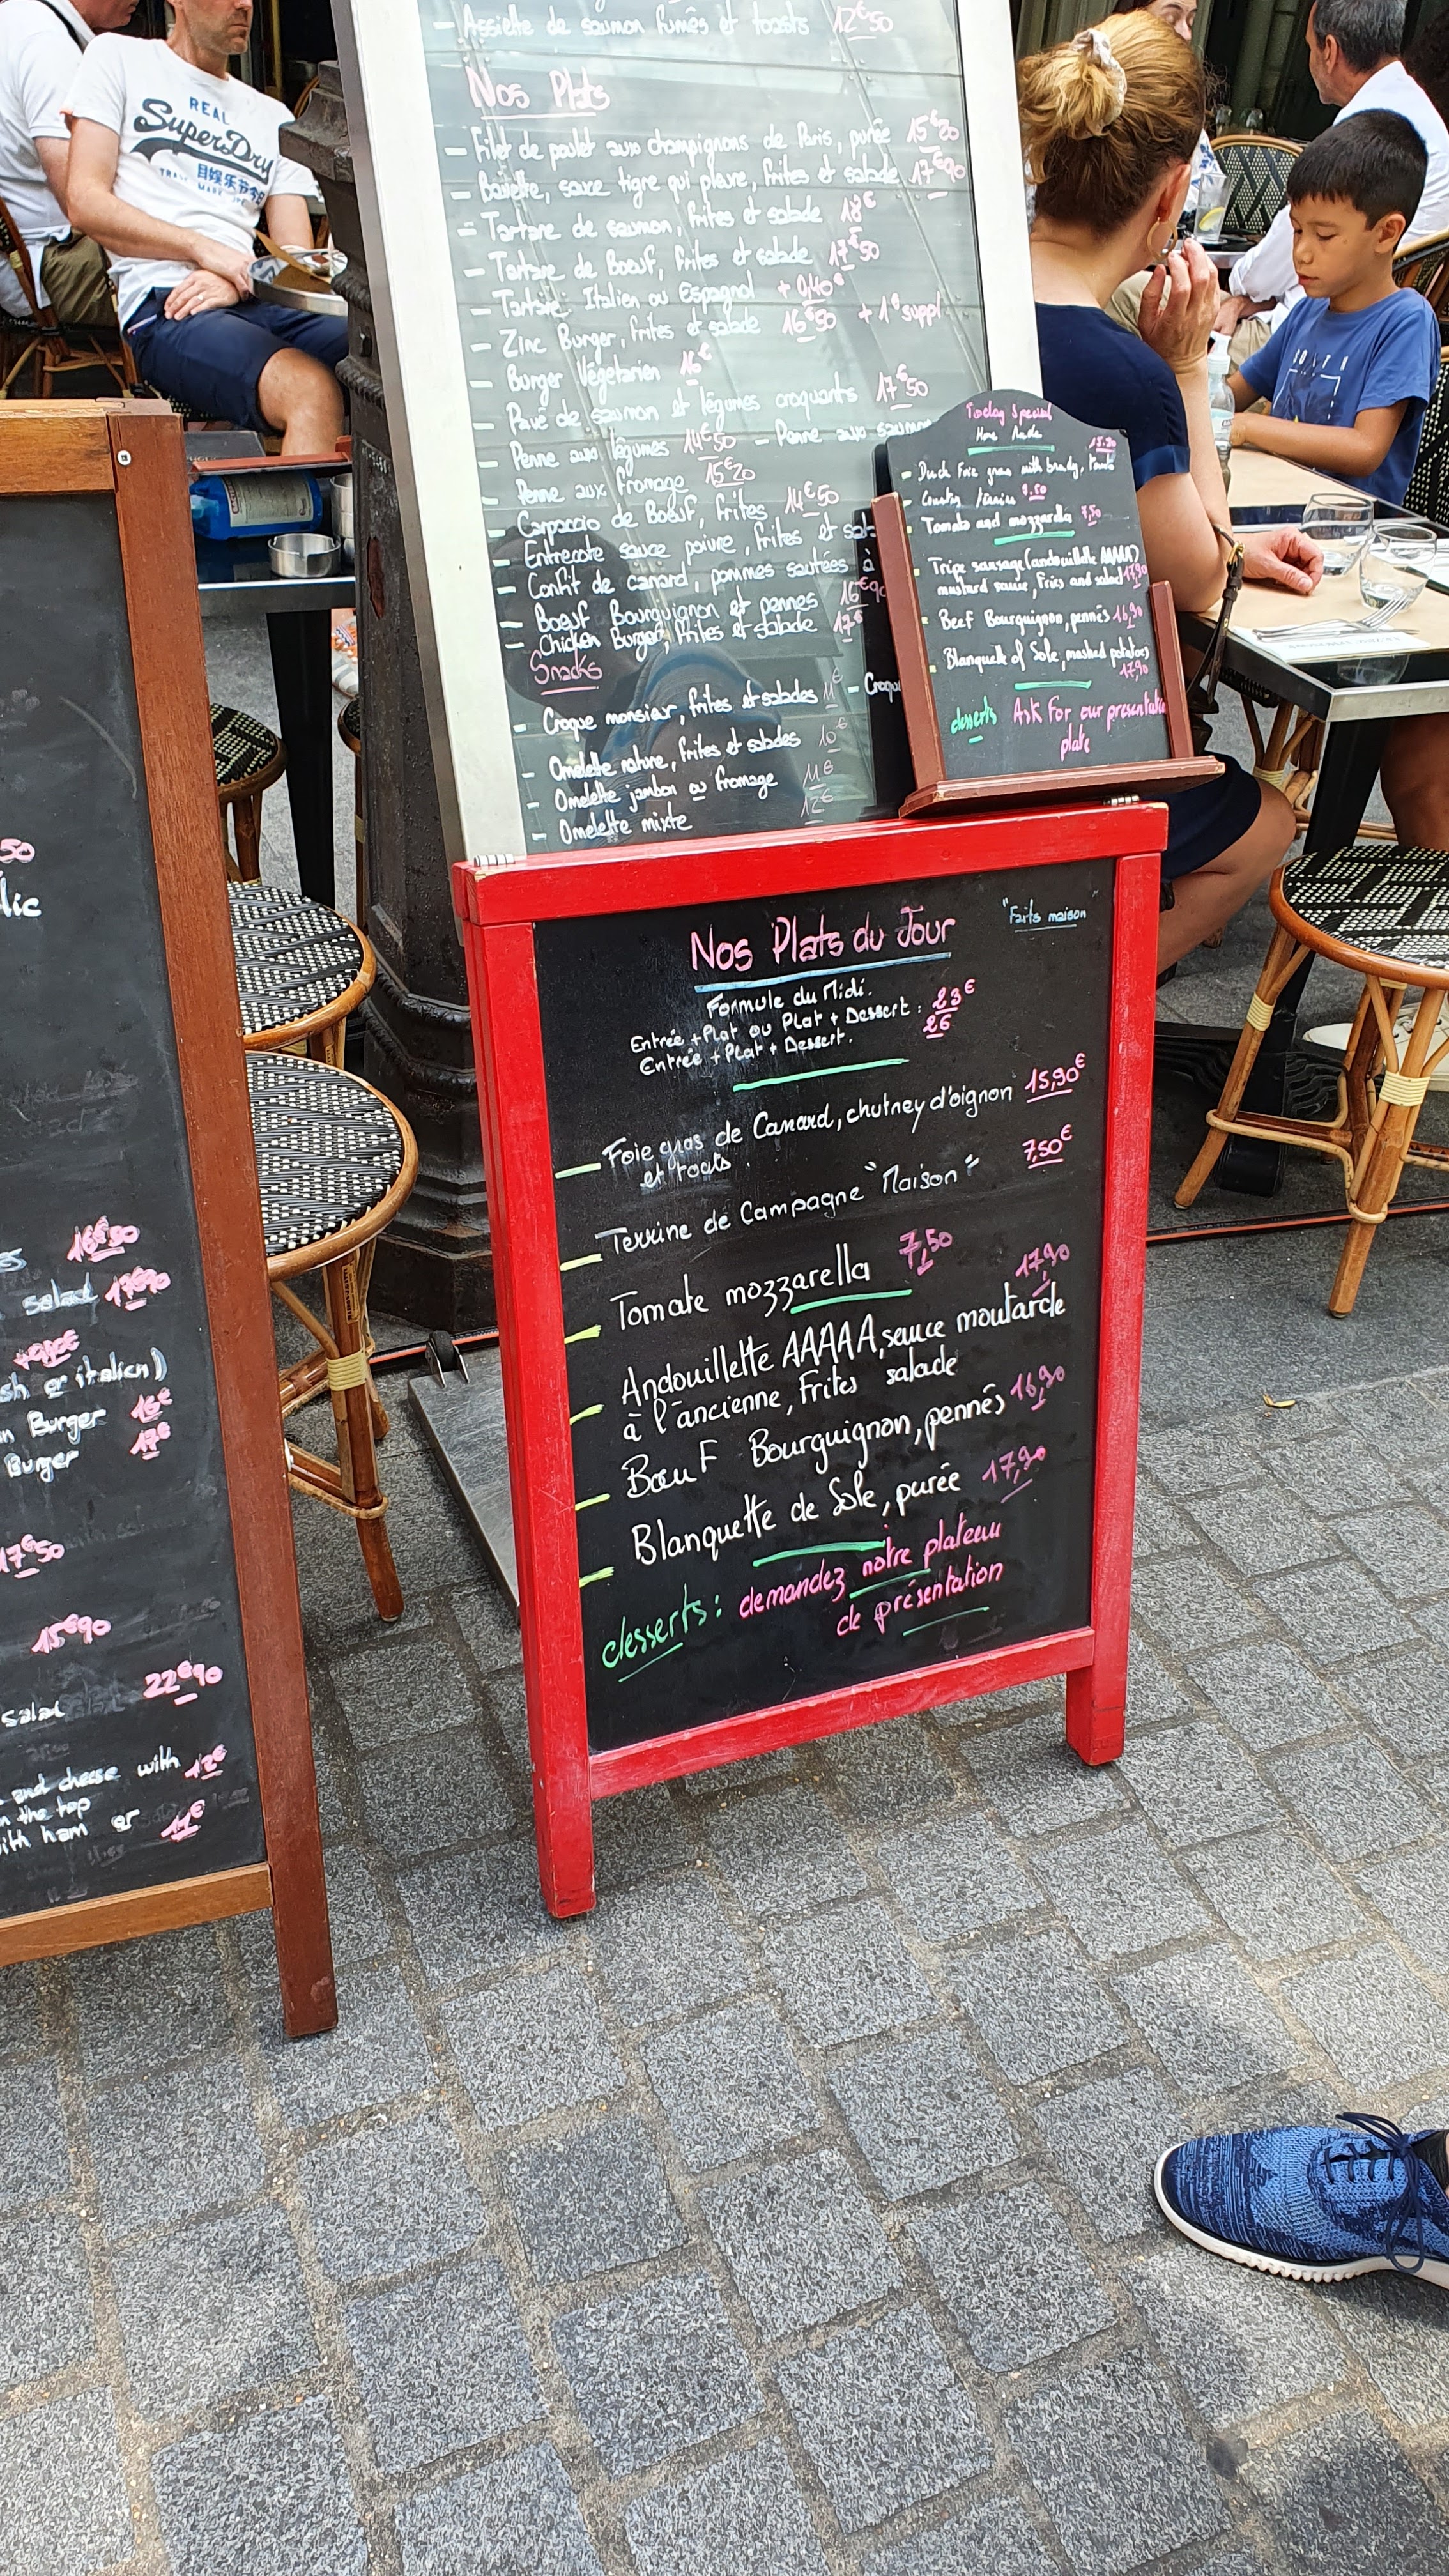 - Assiette de saumon fumés et toasts 12€50
Nos Plats
- Filet de poulet aux champignons de Paris, purée 15€20
- Bavette, sauce tigre qui pleure, frites et salade 17€90
- Tartare de saumon, frites et salade 18€
- Tartare de Boeuf, frites et salade 17€50
- Tartare Italien ou Espagnol + 0,40€
- Zinc Burger, frites et salade 16€50 + 1€ suppl
- Burger Végétarien 16€
- Pavé de saumon et légumes croquants 17€50
- Penne aux légumes 14€50 - Penne aux saumon
- Penne aux fromage 15€20
- Carpaccio de Boeuf, frites 14€50
- Entrecote sauce poivre, frites et sal
- Confit de canard, pommes sautées à
- Boeuf Bourguignon et pennes 16€90
- Chicken Burger, frites et salade 17€
Snacks
- Croque monsieur, frites et salades 11€ - Croqu
- Omelette nature, frites et salades 10€
- Omelette jambon ou fromage 11€
- Omelette mixte 12€
Today Special
Home Made
- Duck Foie gras with brandy, Toasts 15.90
Country Terrine 7.50
- Tomato and mozzarella 7,50
- Tripe sausage (andouillette AAAAA)
mustard sauce, Fries and salad 17,90
- Beef Bourguignon, pennés 16,90
- Blanquette of Sole, mashed potatoes
17,90
desserts Ask For our presentation
plate
Nos Plats du Jour "Faits maison"
Formule du Midi.
Entrée + Plat ou Plat + Dessert : 23€
Entrée + Plat + Dessert. 26
- Foie gras de Canard, chutney d'oignon 15,90€
et toats.
- Terrine de Campagne "Maison" 7,50€
- Tomate mozzarella 7,50
- Andouillette AAAAA, sauce moutarde 17,90
à l'ancienne, Frites salade
- Bœuf Bourguignon, pennés 16,90
- Blanquette de Sole, purée 17,90
desserts: demandez notre plateau
de présentation
50
lic
16€50
salad 17€90
sh or italien)
n Burger 16€
Burger 17€
17€50
15€90
22€90
salad
and cheese with 12€
n the top
with ham or 11€
REAL
SuperDry
TRADE MARK